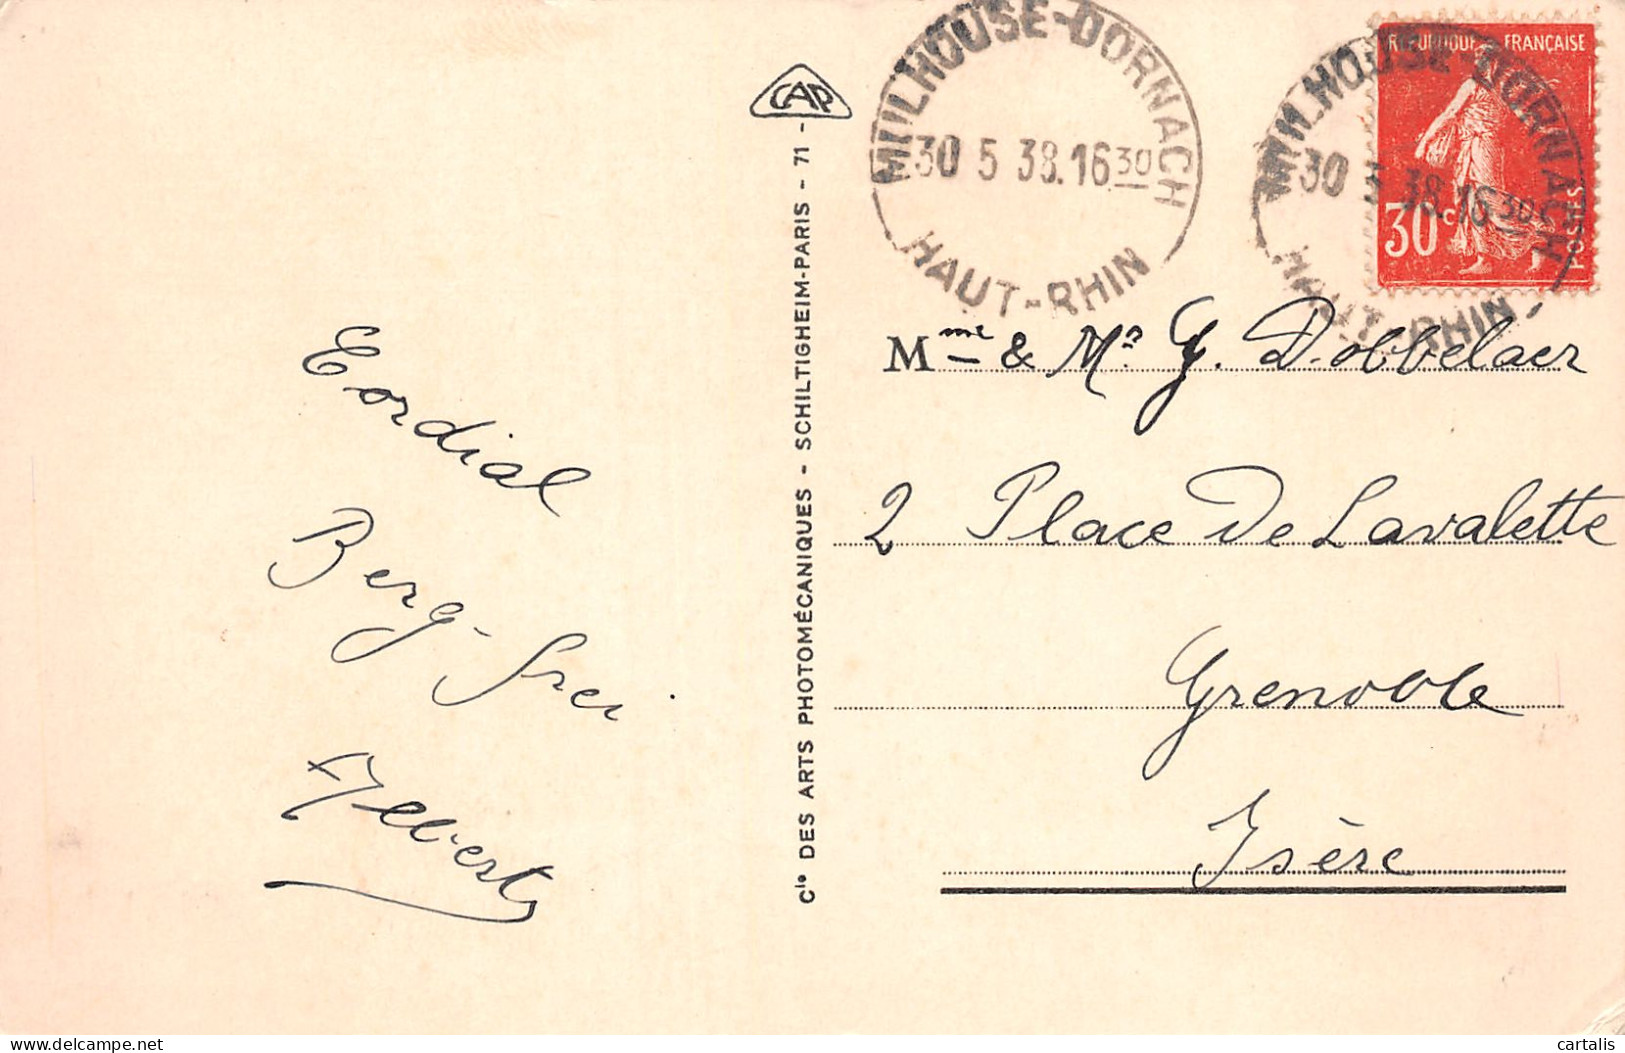 Cordial
Berg-frei
Albert
CAP
Cie DES ARTS PHOTOMÉCANIQUES - SCHILTIGHEIM-PARIS - 71 -
MULHOUSE-DORNACH
30 5 38.16 30
HAUT-RHIN
MULHOUSE-DORNACH
30 5 38.16 30
HAUT-RHIN
REPUBLIQUE FRANÇAISE
30c
POSTES
Mme & Mr G. Dobbelaer
2 Place De Lavalette
Grenoble
Isère
delcampe.net
cartalis